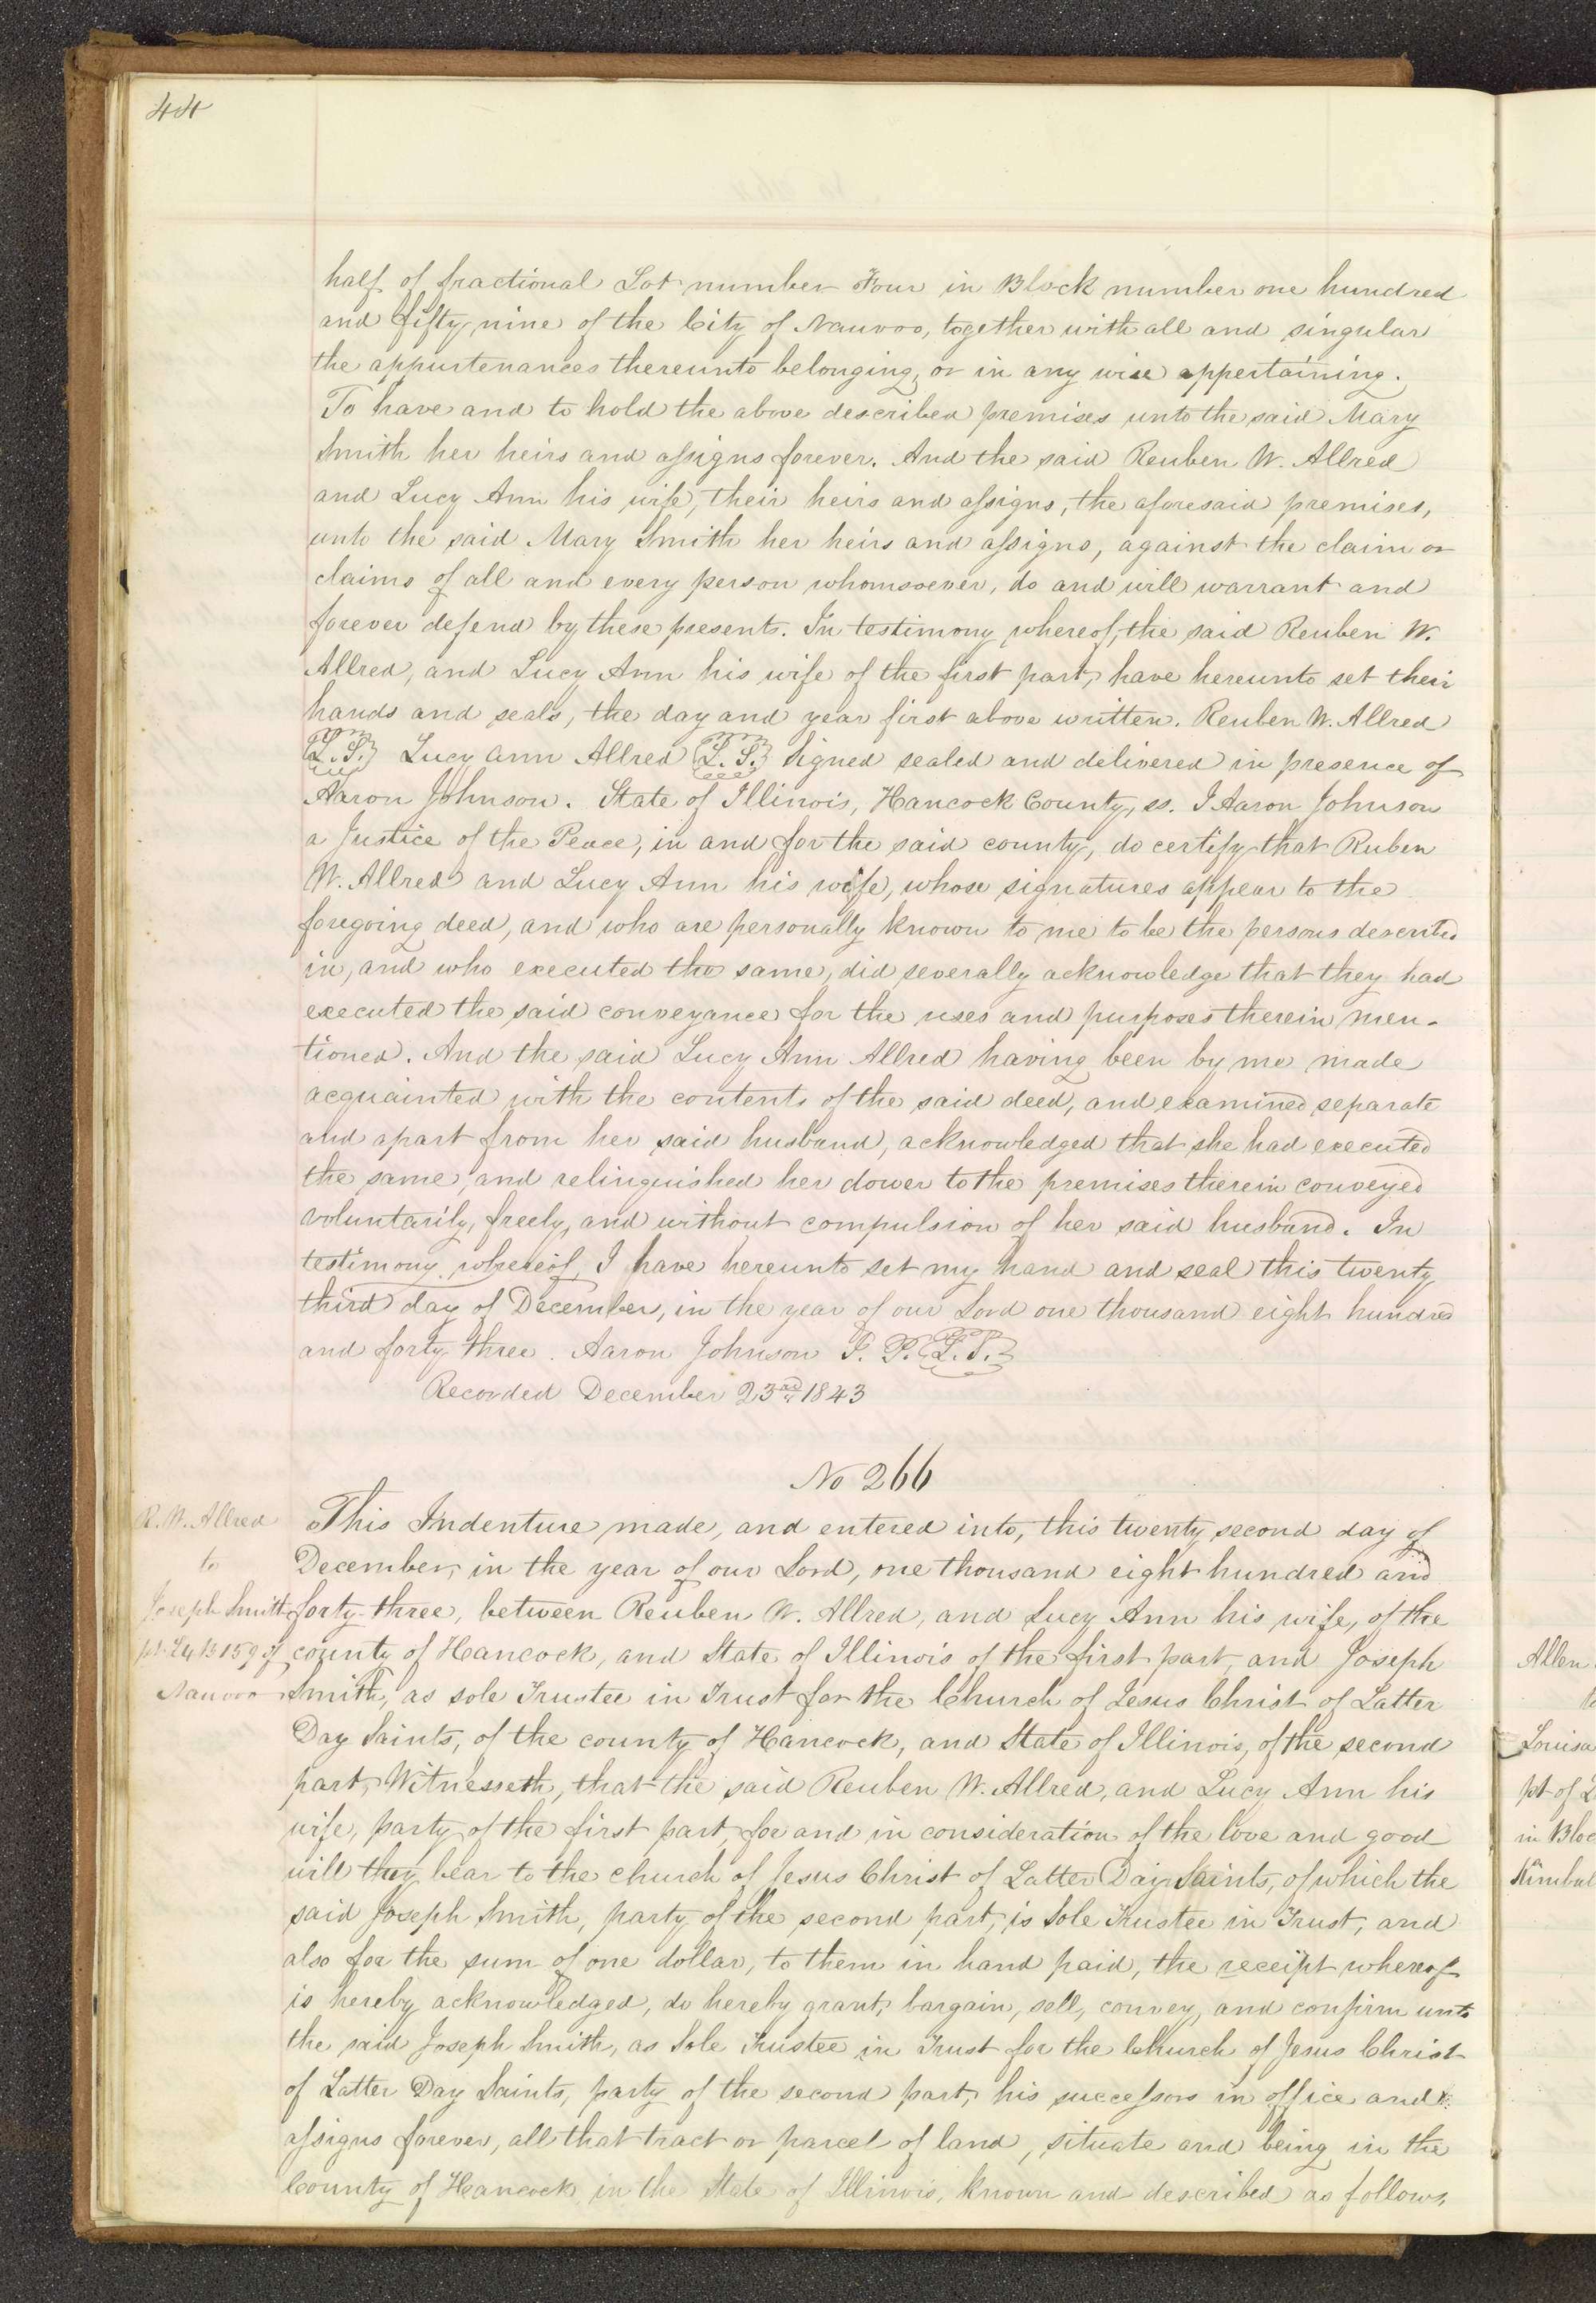 44
half of fractional Lot number Four in Block number one hundred
and fifty nine of the City of Nauvoo, together with all and singular
the appurtenances thereunto belonging, or in any wise appertaining.
To have and to hold the above described premises unto the said Mary
Smith her heirs and assigns forever. And the said Reuben W. Allred
and Lucy Ann his wife, their heirs and assigns, the aforesaid premises,
unto the said Mary Smith her heirs and assigns, against the claim or
claims of all and every person whomsoever, do and will warrant and
forever defend by these presents. In testimony whereof, the said Reuben W.
Allred, and Lucy Ann his wife of the first part, have hereunto set their
hands and seals, the day and year first above written. Reuben W. Allred
L.S. Lucy Ann Allred L.S. Signed sealed and delivered in presence of
Aaron Johnson. State of Illinois, Hancock County, ss. I Aaron Johnson
a Justice of the Peace, in and for the said county, do certify that Ruben
W. Allred and Lucy Ann his wife, whose signatures appear to the
foregoing deed, and who are personally known to me to be the persons described
in, and who executed the same, did severally acknowledge that they had
executed the said conveyance for the uses and purposes therein men-
tioned. And the said Lucy Ann Allred having been by me made
acquainted with the contents of the said deed, and examined separate
and apart from her said husband, acknowledged that she had executed
the same, and relinquished her dower to the premises therein conveyed
voluntarily, freely, and without compulsion of her said husband. In
testimony whereof, I have hereunto set my hand and seal this twenty
third day of December, in the year of our Lord one thousand eight hundred
and forty three. Aaron Johnson J. P. L.S.
Recorded December 23rd 1843
No 266
R. W. Allred
to
Joseph Smith
pt. L4 B 159 of
Nauvoo
This Indenture made, and entered into, this twenty second day of
December, in the year of our Lord, one thousand eight hundred and
forty-three, between Reuben W. Allred, and Lucy Ann his wife, of the
county of Hancock, and State of Illinois of the first part, and Joseph
Smith, as sole Trustee in Trust for the Church of Jesus Christ of Latter
Day Saints, of the county of Hancock, and State of Illinois, of the second
part, Witnesseth, that the said Reuben W. Allred, and Lucy Ann his
wife, party of the first part, for and in consideration of the love and good
will they bear to the church of Jesus Christ of Latter Day Saints, of which the
said Joseph Smith, party of the second part, is Sole Trustee in Trust, and
also for the sum of one dollar, to them in hand paid, the receipt whereof
is hereby acknowledged, do hereby grant, bargain, sell, convey, and confirm unto
the said Joseph Smith, as Sole Trustee in Trust for the Church of Jesus Christ
of Latter Day Saints, party of the second part, his successors in office and
assigns forever, all that tract or parcel of land, situate and being in the
County of Hancock in the State of Illinois, known and described as follows,
Allen
Louisa
pt of
in Bloc
Kimbal